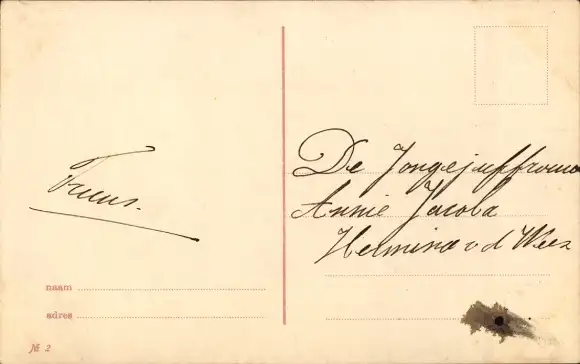 Truus.
naam
adres
№ 2
De Jongejuffrouw
Annie Jacoba
Helmina v d Wees